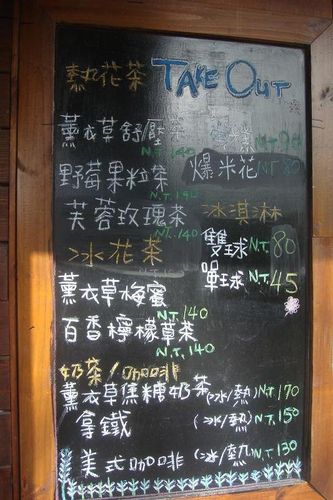 熱花茶 TAKE OUT
薰衣草舒壓茶
N.T.140
野莓果粒茶 爆米花 N.T.80
N.T.140
芙蓉玫瑰茶 冰淇淋
N.T.140
冰花茶 雙球 N.T.80
單球 N.T.45
薰衣草梅蜜
N.T.140
百香檸檬草茶
N.T.140
奶茶/咖啡
薰衣草焦糖奶茶(冰/熱)N.T.170
拿鐵 (冰/熱)N.T.150
美式咖啡 (冰/熱)N.T.130